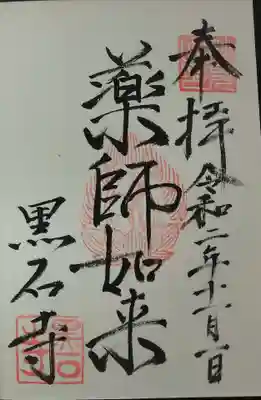 奉拝 令和二年十一月一日
薬師如来
黒石寺